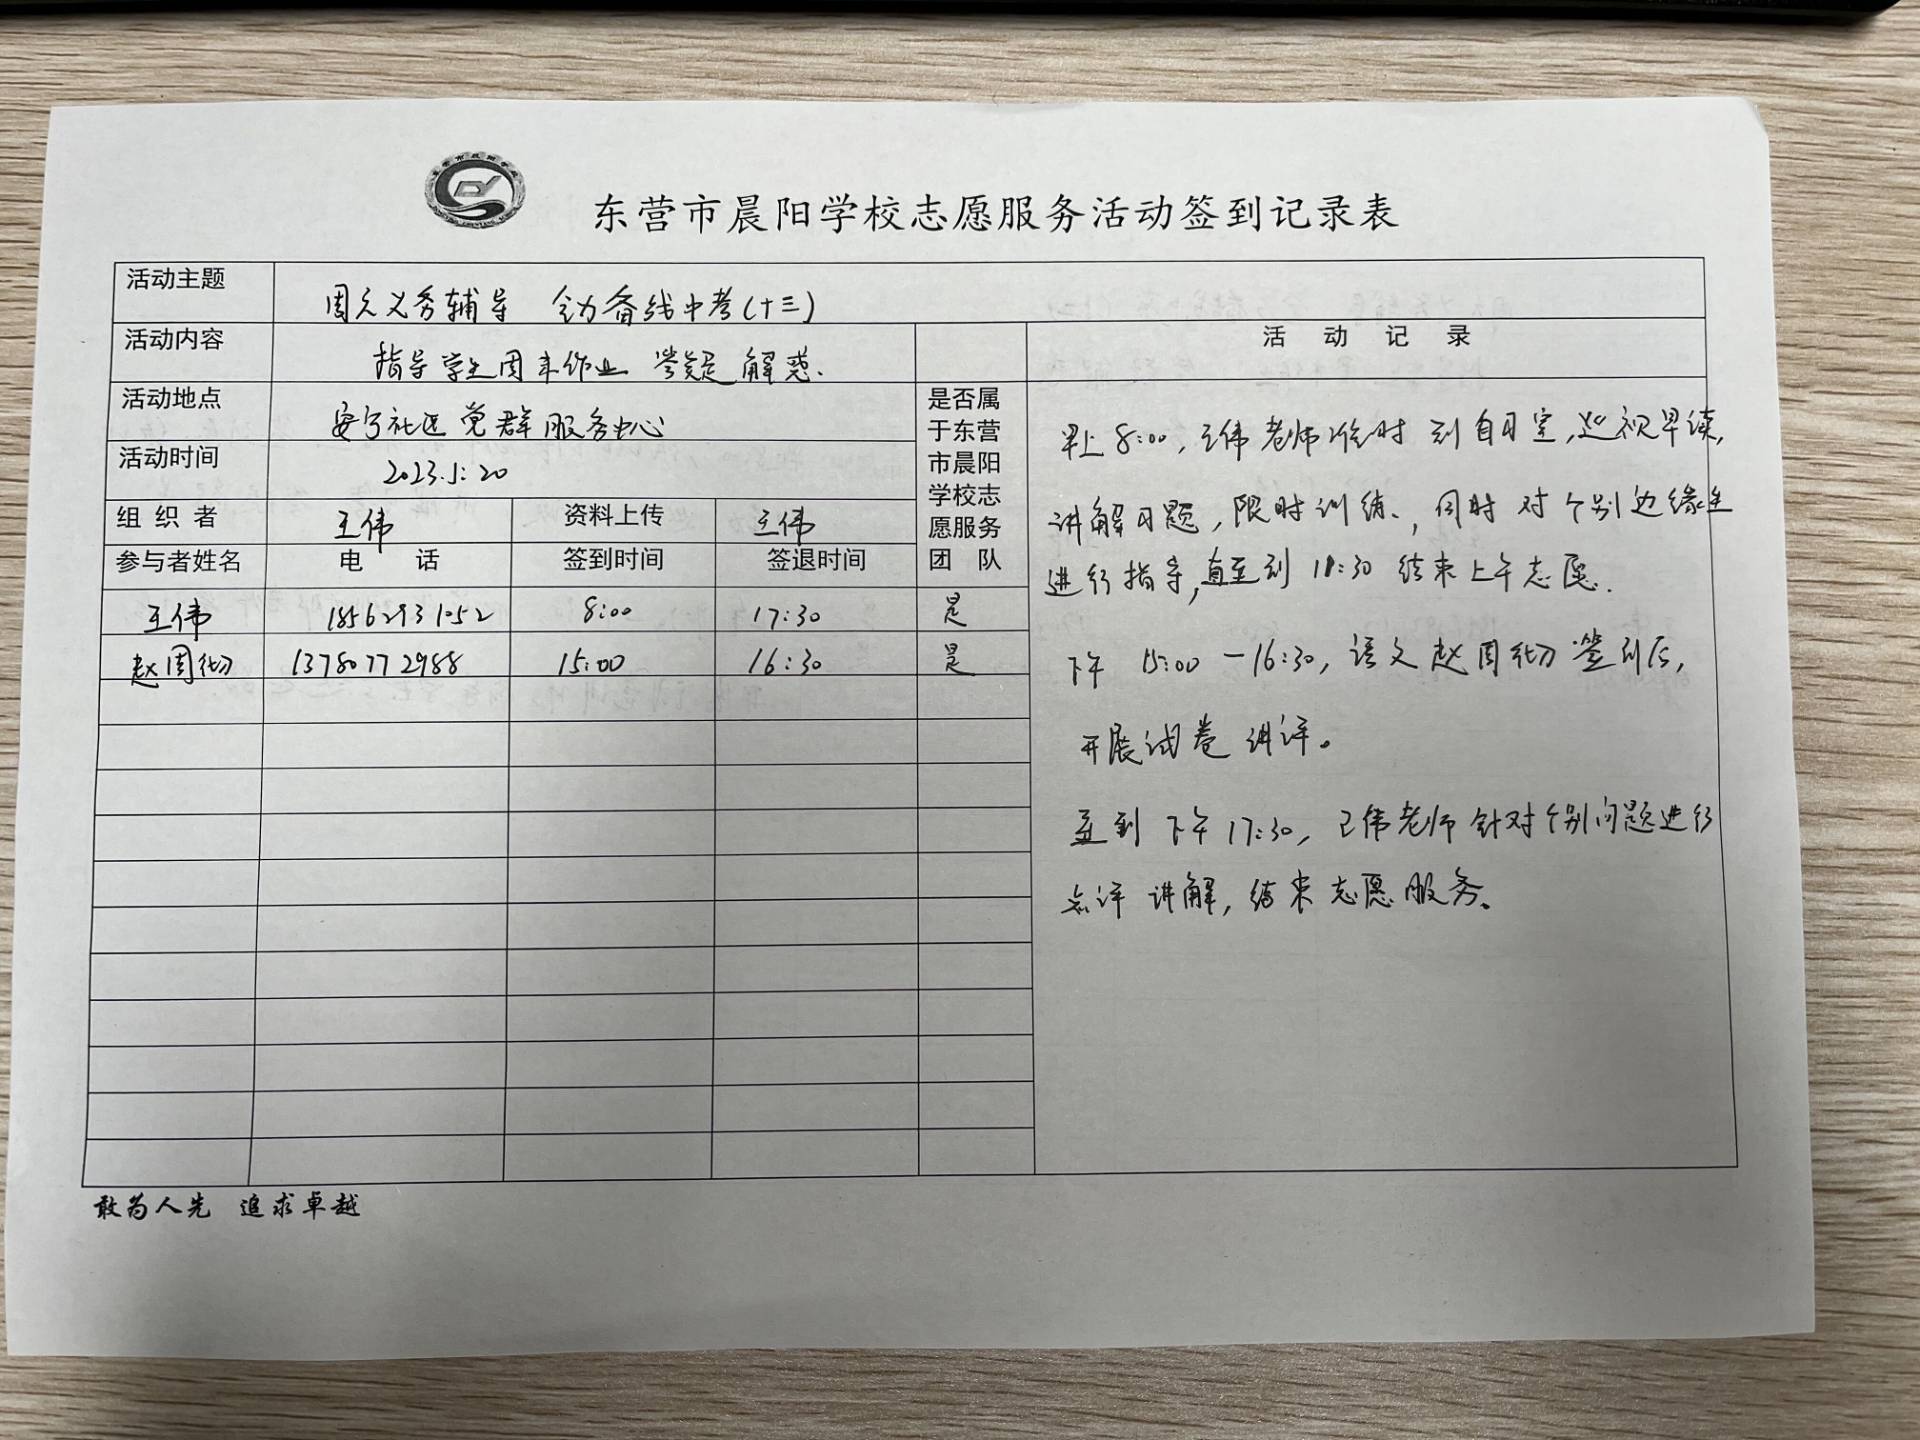 东营市晨阳学校志愿服务活动签到记录表
活动主题 周六义务辅导 全力备战中考(十三)
活动内容 指导学生周末作业 答疑解惑.
活动地点 安宁社区党群服务中心
活动时间 2023.5.20
组织者 王伟 资料上传 王伟
参与者姓名 电 话 签到时间 签退时间
是否属
于东营
市晨阳
学校志
愿服务
团 队
王伟 18562931052 8:00 17:30 是
赵周 13780772988 15:00 16:30 是
活 动 记 录
早上8:00,王伟老师准时到自习室,巡视早读,
讲解习题,限时训练,同时对个别边缘生
进行指导,直至到11:30结束上午志愿.
下午 15:00—16:30,语文赵周 签到后,
开展试卷讲评。
直到下午17:30,王伟老师针对个别问题进行
点评讲解,结束志愿服务。
敢为人先 追求卓越